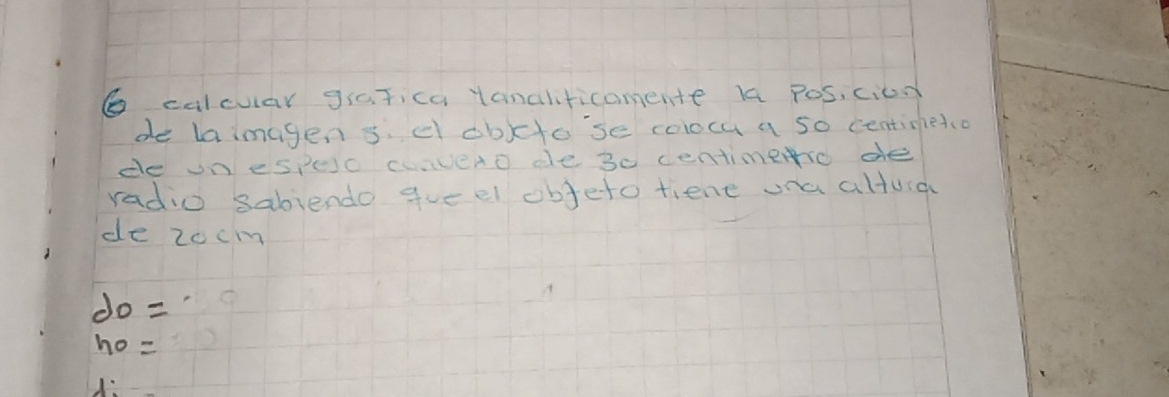 6 calcular grafica Yanaliticamente la Posicion
de la imagen si el objeto se coloca a 50 centimetro
de un espejo convexo de 30 centimetro de
radio sabiendo que el objeto tiene una altura
de 20cm
do =
ho =
di